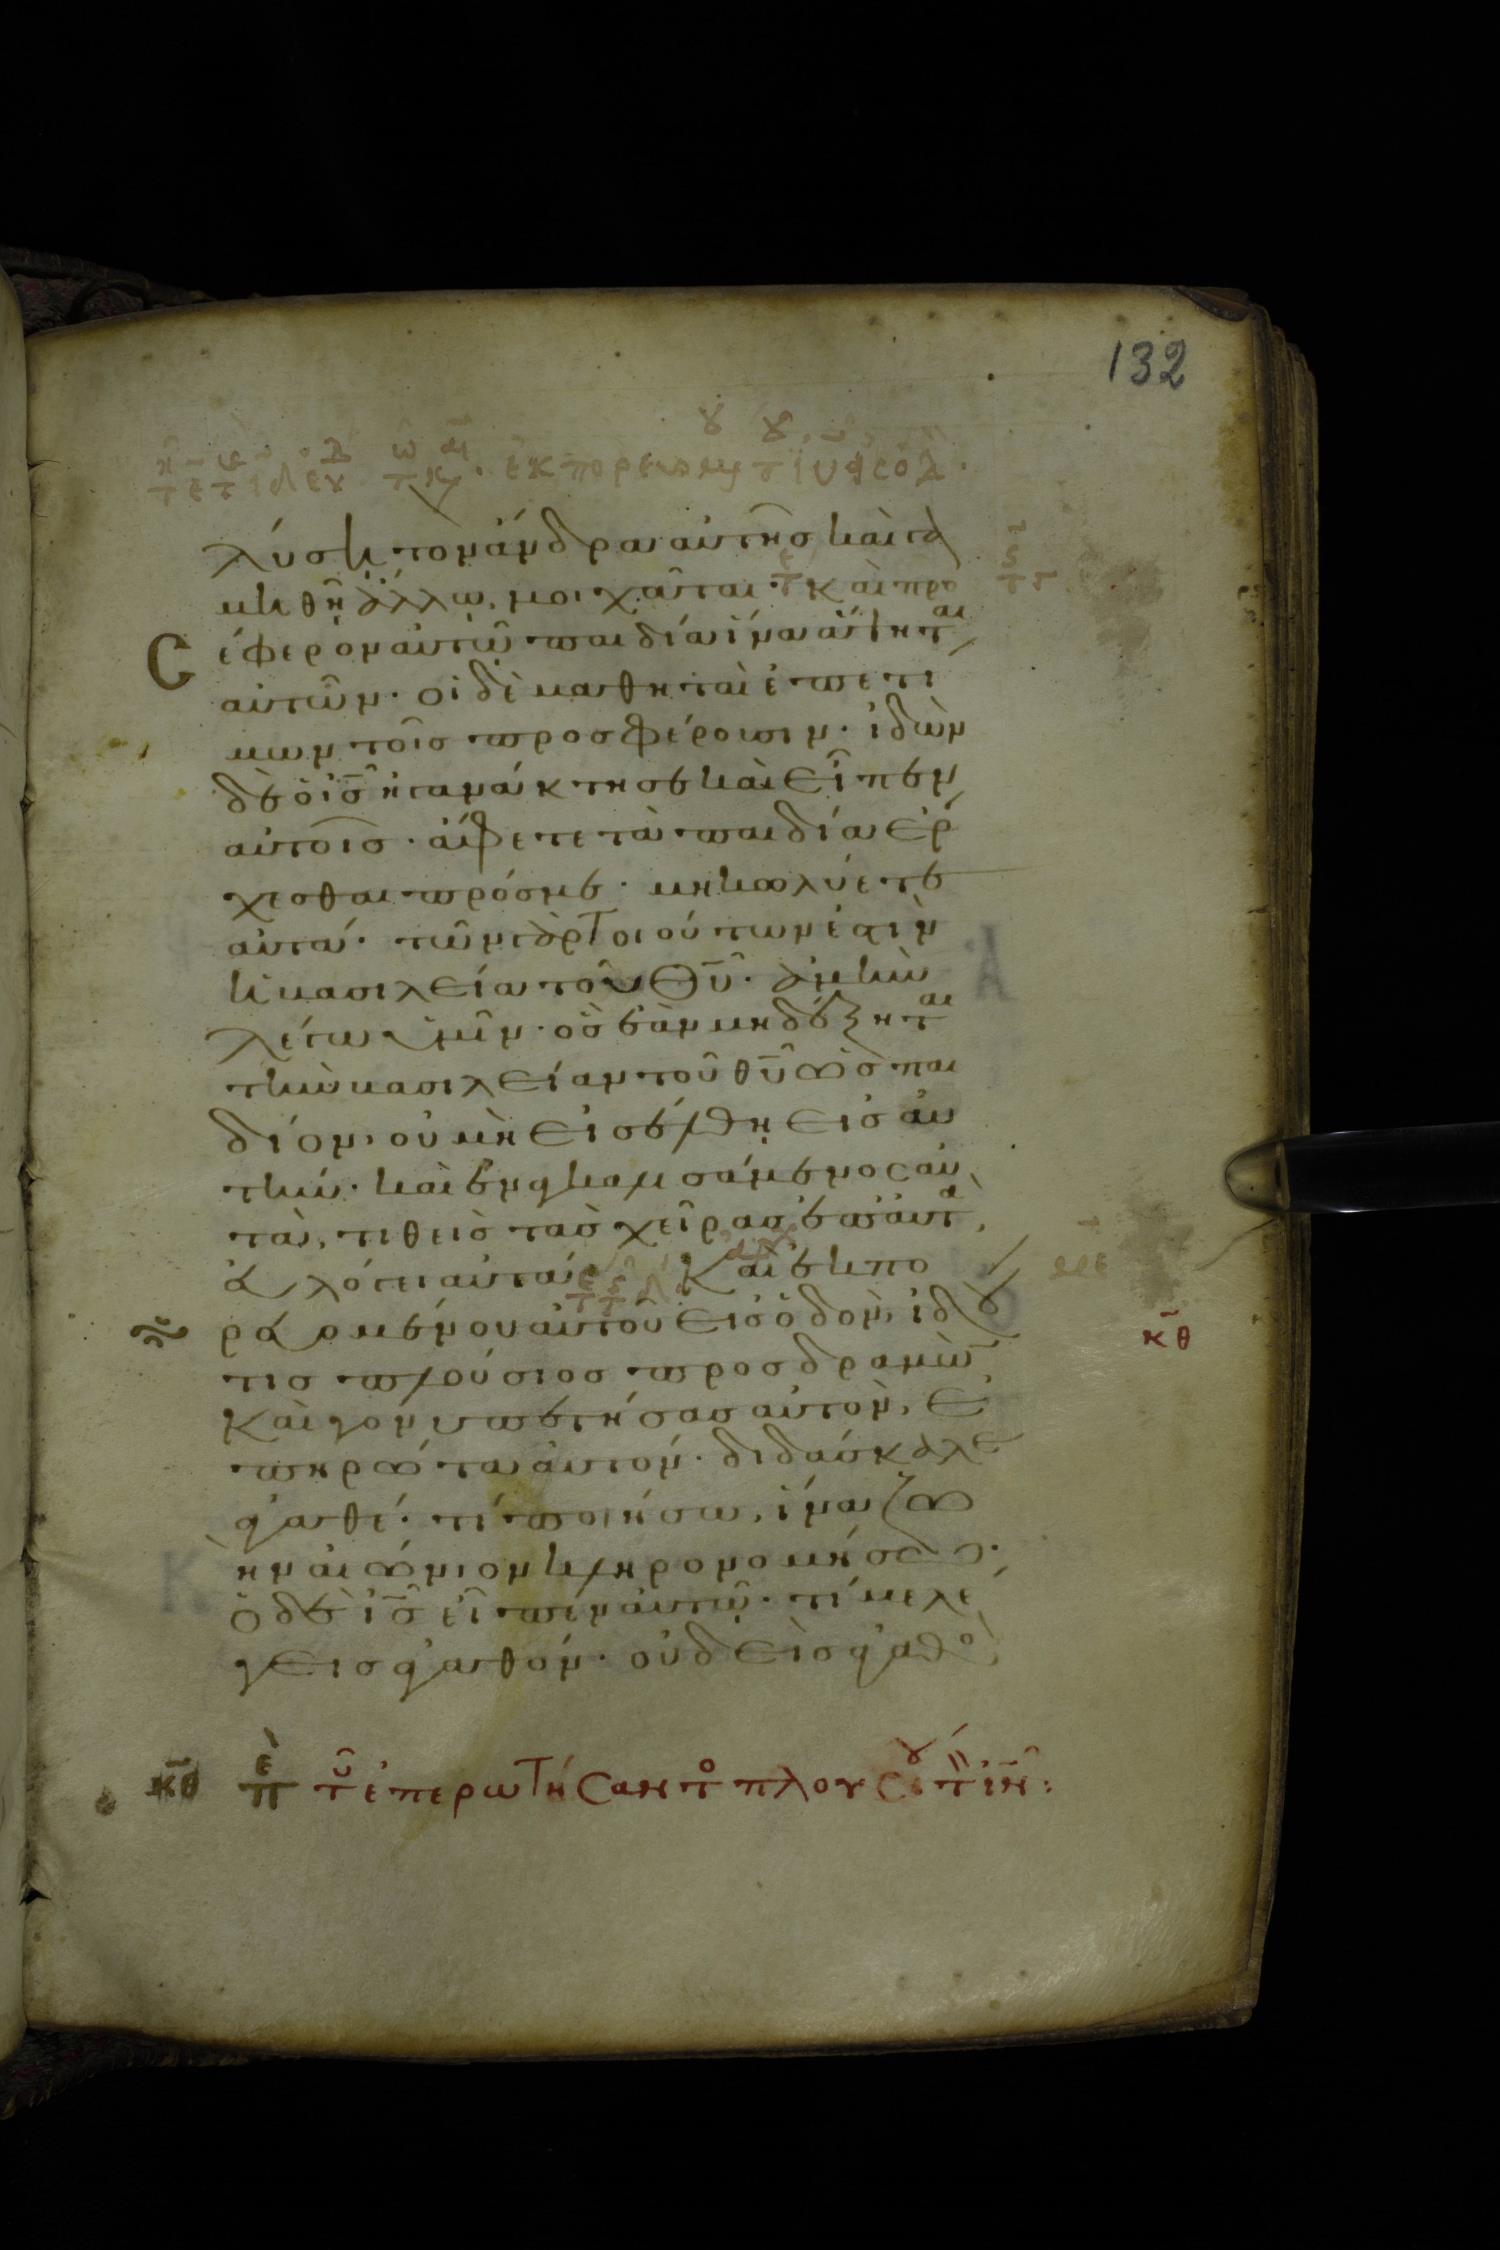 132
λύσῃ τὸν ἄνδρα αὐτῆς καὶ γα
μηθῇ ἄλλω, μοιχᾶται· καὶ προ
σέφερον αὐτῶ παιδία ἵνα ἅψηται
αὐτῶν· οἱ δὲ μαθηταὶ ἐπετί
μων τοῖς προσφέρουσιν· ἰδὼν
δὲ ὁ ις ἠγανάκτησε καὶ εἶπεν
αὐτοῖς· ἄφετε τὰ παιδία ἔρ
χεσθαι πρός με· μὴ κωλύετε
αὐτά· τῶν γὰρ τοιούτων ἐστὶν
ἡ βασιλεία τοῦ θυ· ἀμὴν
λέγω ὑμῖν· ὃς ἐὰν μὴ δέξηται
τὴν βασιλείαν τοῦ θυ ὡς παι
δίον, οὐ μὴ εἰσέλθη εἰς αὐ
τήν· καὶ ἐναγκαλισάμενος αὐ
τὰ, τιθεὶς τὰς χεῖρας ἐπ αὐτὰ,
εὐλόγει αὐτά· Καὶ ἐκπο
ρευομένου αὐτοῦ εἰς ὁδὸν, ἰδοὺ
τις πλούσιος προσδραμὼν
καὶ γονυπετήσας αὐτὸν, ἐ
πηρώτα αὐτόν· διδάσκαλε
ἀγαθέ· τί ποιήσω, ἵνα ζω
ὴν αἰώνιον κληρονομήσω·
ὁ δὲ ις εἶπεν αὐτῶ· τί με λέ
γεις ἀγαθόν· οὐδεὶς ἀγαθὸς
κθ
κθ περὶ τοῦ ἐπερωτήσαντος πλουσίου τὸν ιν: